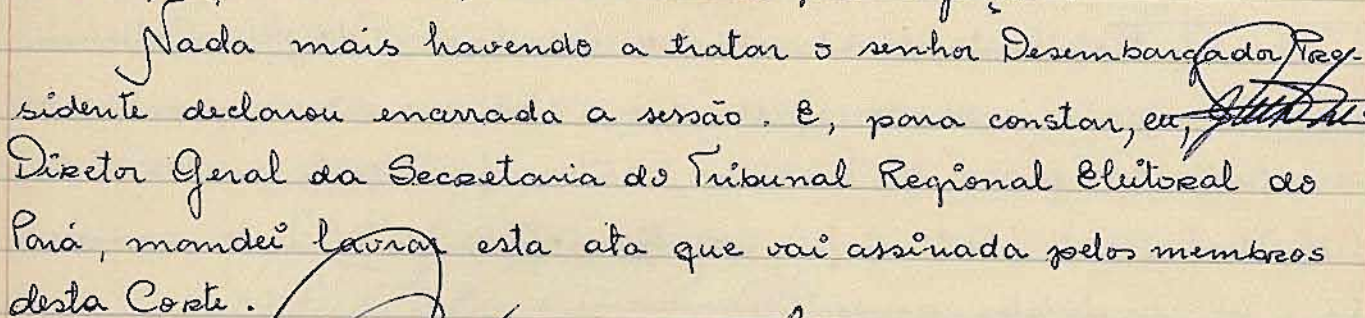 Nada mais havendo a tratar o senhor Desembargador Pre-
sidente declarou encerrada a sessão. E, para constar, eu,
Diretor Geral da Secretaria do Tribunal Regional Eleitoral do
Pará, mandei lavrar esta ata que vai assinada pelos membros
desta Corte.